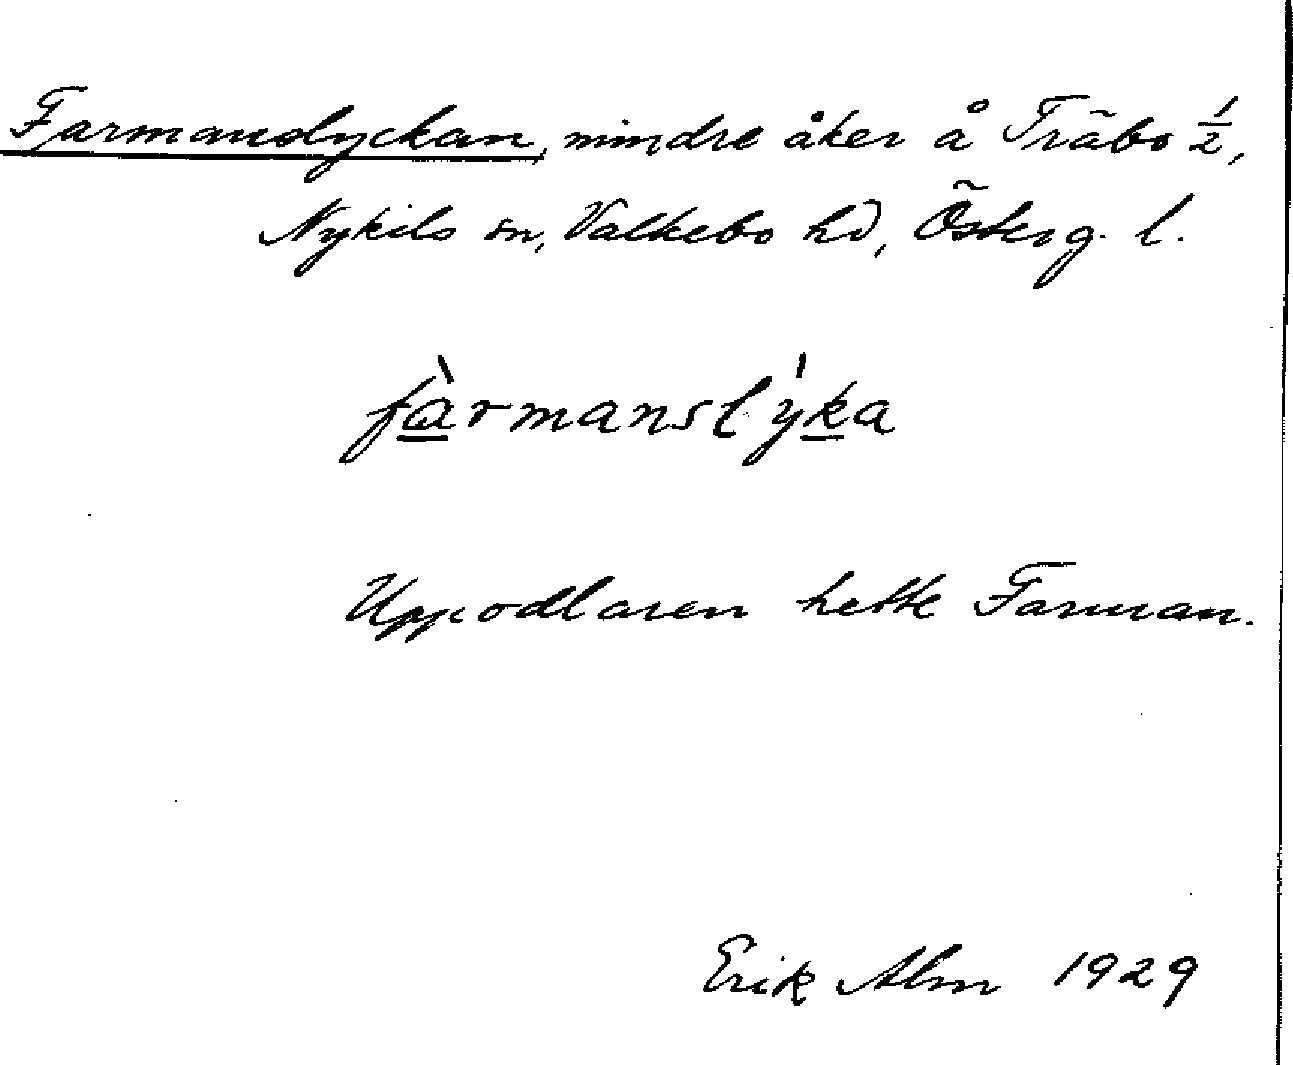 Farmanslyckan, mindre åker å Träbo 1/2,
Nykils sn, Valkebo hd, Österg. l.
fàrmanslýka
Uppodlaren hette Farman.
Erik Alm 1929